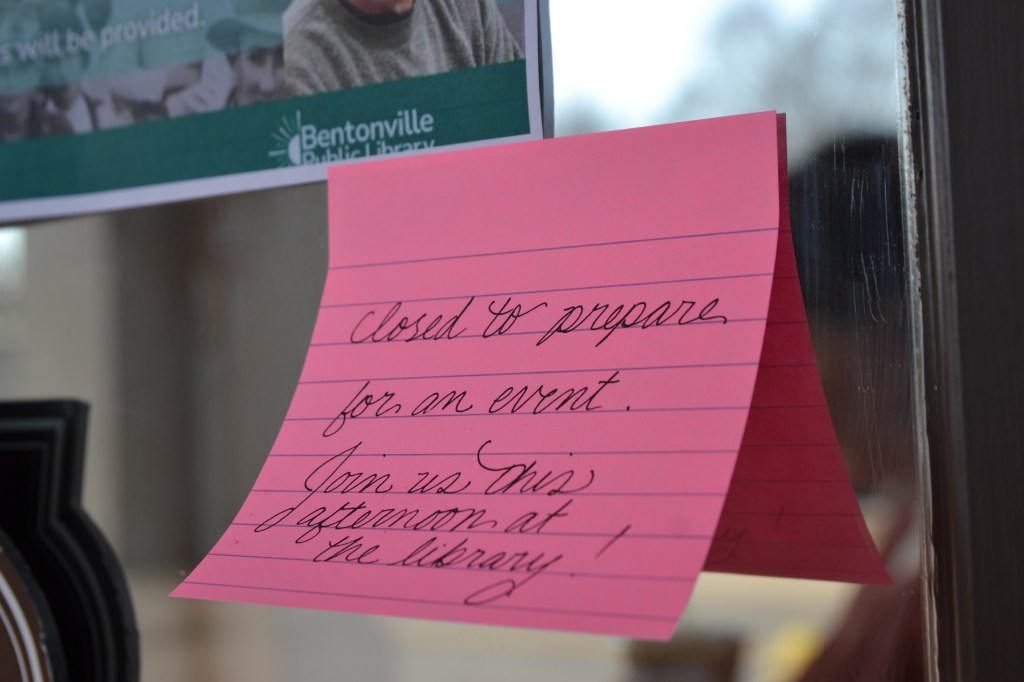 s will be provided.
Bentonville
Public Library
Closed to prepare
for an event.
Join us this
afternoon at
the library!